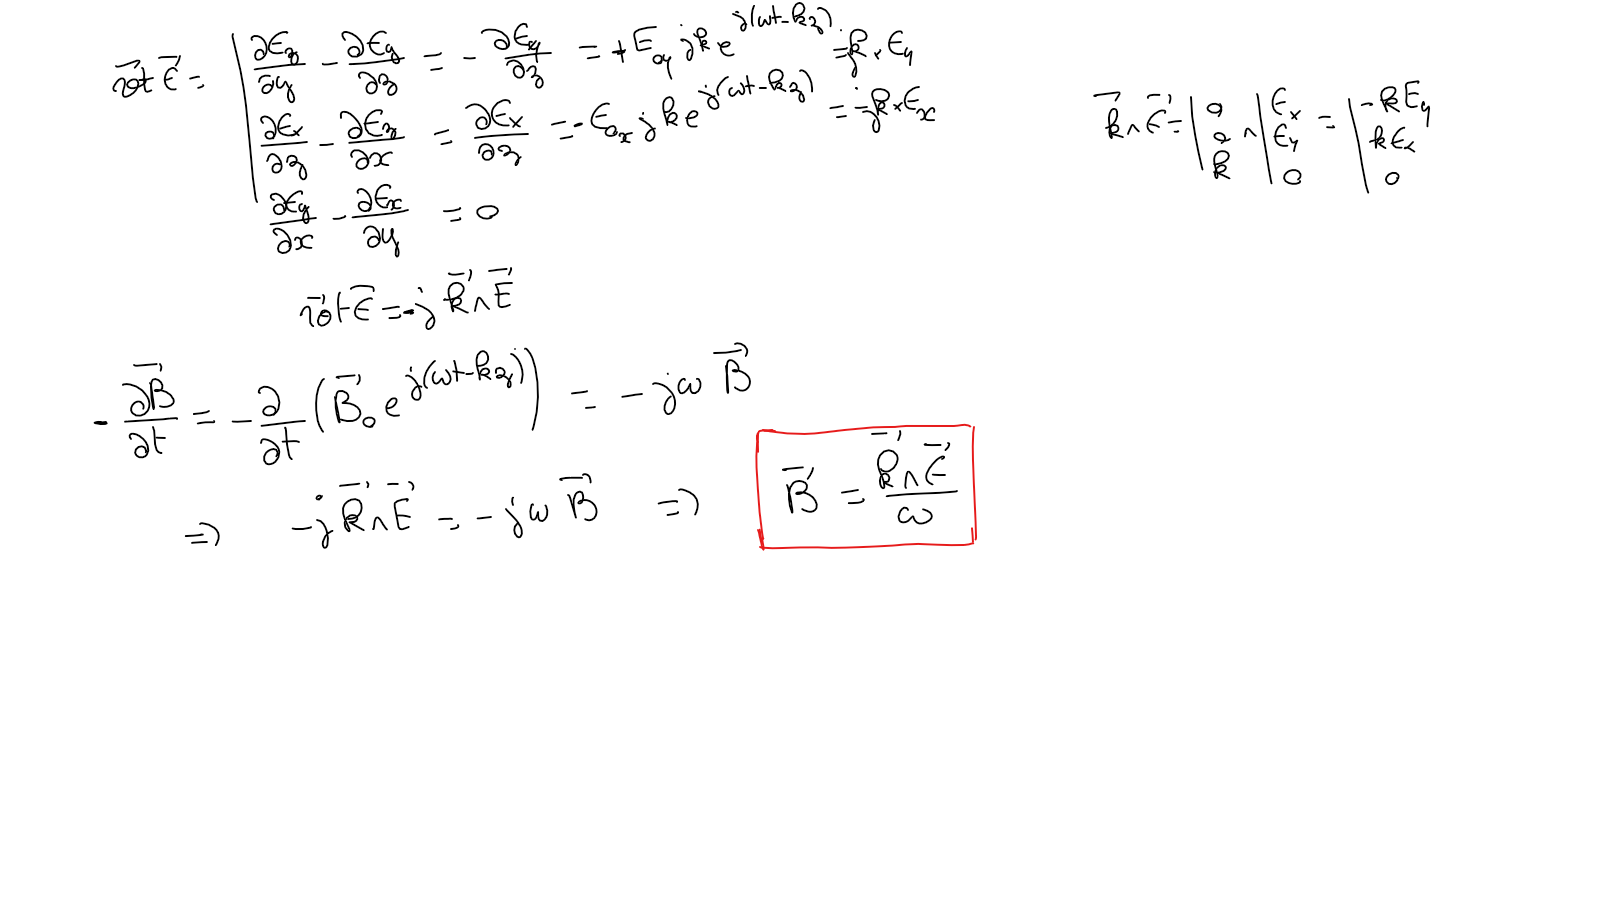 \vec{rot} \vec{E} = | ∂E_z/∂y - ∂E_y/∂z = - ∂E_y/∂z = + E_{oy} jk e^{j(ωt-kz)} = jk × E_y
∂E_x/∂z - ∂E_z/∂x = ∂E_x/∂z = - E_{ox} jk e^{j(ωt-kz)} = -jk × E_x
∂E_y/∂x - ∂E_x/∂y = 0
\vec{k} ∧ \vec{E} = | 0 0 k ∧ | E_x E_y 0 = | -kE_y kE_x 0
\vec{rot} \vec{E} = -j \vec{k} ∧ \vec{E}
- ∂\vec{B}/∂t = - ∂/∂t (\vec{B}_o e^{j(ωt-kz)}) = -jω \vec{B}
=> -j \vec{k} ∧ \vec{E} = -jω \vec{B} => \vec{B} = \vec{k} ∧ \vec{E} / ω